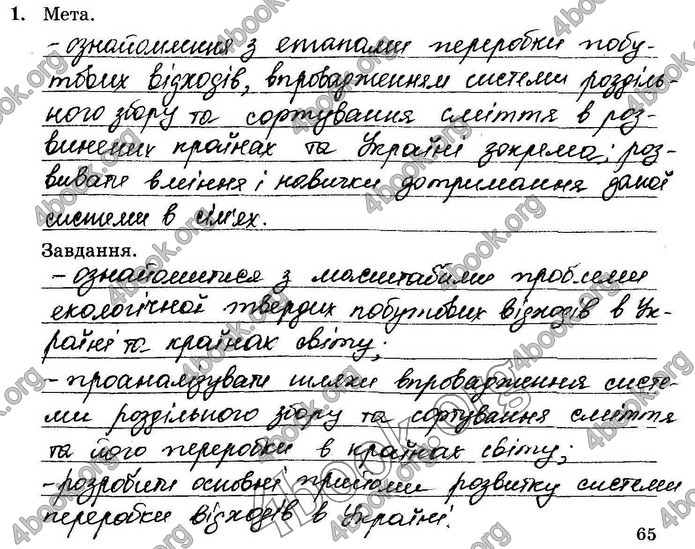 1. Мета.
- ознайомлення з етапами переробки побу-
тових відходів, впровадженням системи розділь-
ного збору та сортування сміття в роз-
винених країнах та Україні зокрема; роз-
вивати вміння і навички дотримання даної
системи в сім'ях.
Завдання.
- ознайомитися з масштабами проблеми
екологічної твердих побутових відходів в Ук-
раїні та країнах світу;
- проаналізувати шляхи впровадження систе-
ми роздільного збору та сортування сміття
та його переробки в країнах світу;
- розробити основні прийоми розвитку системи
переробки відходів в Україні.
65
4book.org